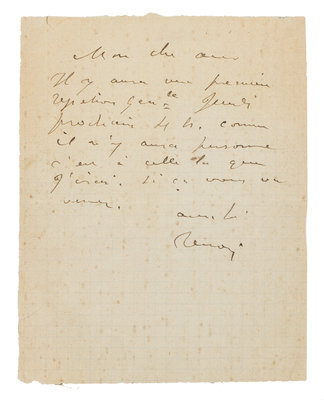 Mon cher ami
Il y aura une première
répétition Génle Jeudi
prochain 4 h. comme
il n'y aura personne
c'est à celle là que
j'irai. si ça vous va
venez.
amitié
Renoir